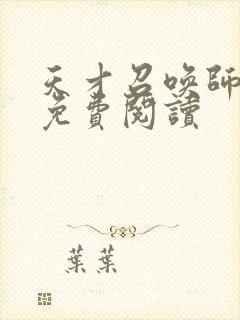 天才召喚師
免費閱讀
葉葉